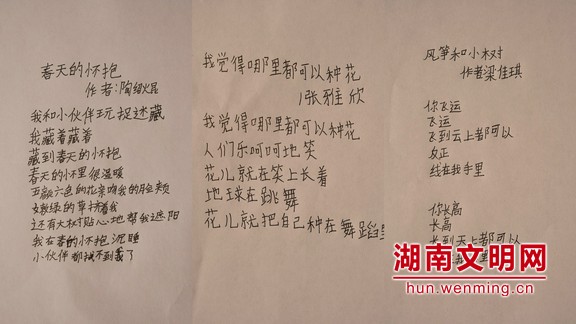 春天的怀抱
作者:陶焮焜
我和小伙伴玩捉迷藏
我藏着藏着
藏到春天的怀抱
春天的怀里很温暖
五颜六色的花亲吻我的脸颊
嫩绿的草拥着我
还有大树贴心地帮我遮阳
我在春的怀抱沉睡
小伙伴都找不到我了
我觉得哪里都可以种花
张雅欣
我觉得哪里都可以种花
人们乐呵呵地笑
花儿就在笑上长着
地球在跳舞
花儿就把自己种在舞蹈
风筝和小树
作者梁佳琪
你飞远
飞远
飞到云上都可以
反正
线在我手里
你长高
长高
长到天上都可以
湖南文明网
hun.wenming.cn